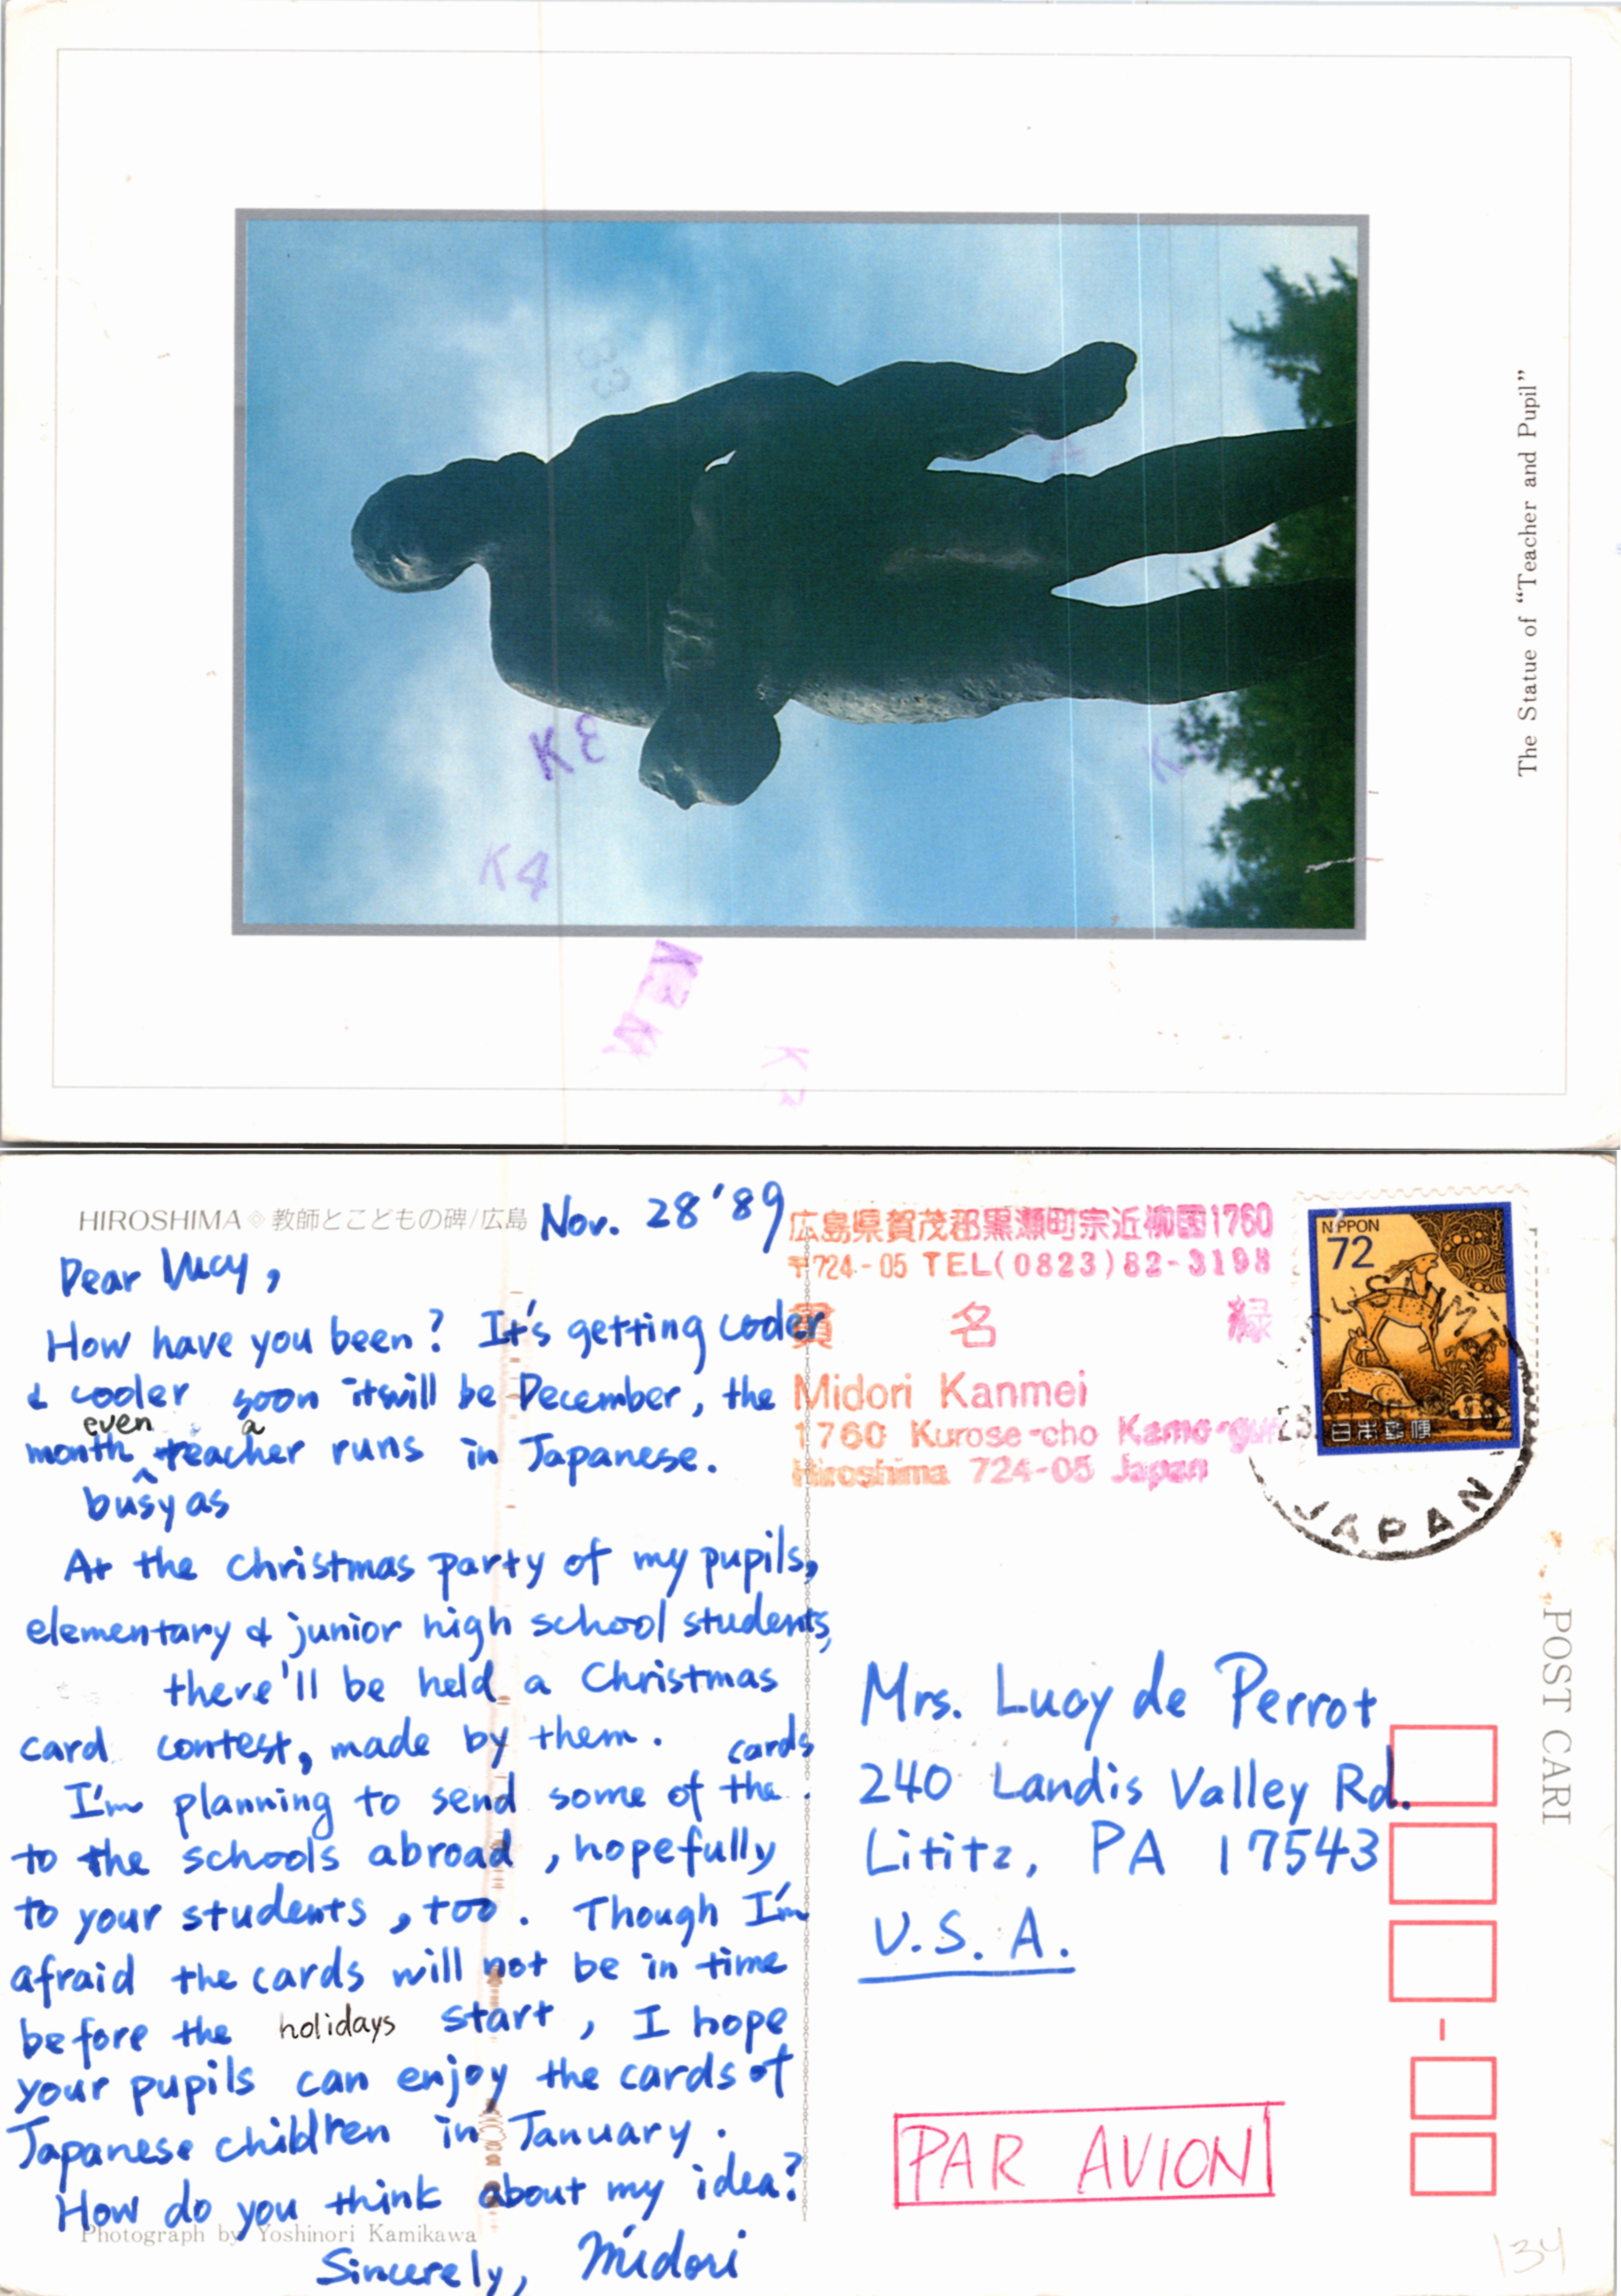 The Statue of “Teacher and Pupil”
K3
K4
HIROSHIMA ◈ 教師とこどもの碑/広島
Nov. 28 '89
Dear Lucy,
How have you been? It's getting cooler
& cooler soon it will be December, the
even a
month ^ teacher runs in Japanese.
busy as
At the Christmas party of my pupils,
elementary & junior high school students,
there'll be held a Christmas
card contest, made by them.
cards
I'm planning to send some of the
to the schools abroad, hopefully
to your students, too. Though I'm
afraid the cards will not be in time
before the holidays start, I hope
your pupils can enjoy the cards of
Japanese children in January.
How do you think about my idea?
Photograph by Yoshinori Kamikawa
Sincerely, Midori
広島県賀茂郡黒瀬町宗近柳国1760
〒724-05 TEL(0823)82-3198
貫名 緑
Midori Kanmei
1760 Kurose-cho Kamo-gun
Hiroshima 724-05 Japan
NIPPON
72
日本郵便
JAPAN
POST CARD
Mrs. Lucy de Perrot
240 Landis Valley Rd.
Lititz, PA 17543
U.S.A.
PAR AVION
134